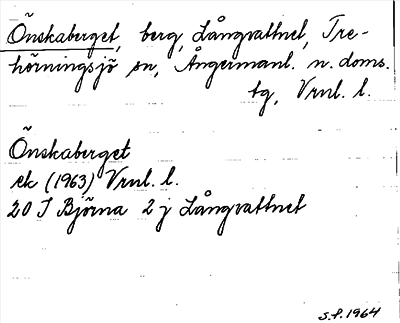 Önskaberget, berg, Långvattnet, Tre-
hörningsjö sn, Ångermanl. n. doms.
tg, Vrnl. l.
Önskaberget
ek (1963) Vrnl. l.
20 I Björna 2 j Långvattnet
S.P. 1964